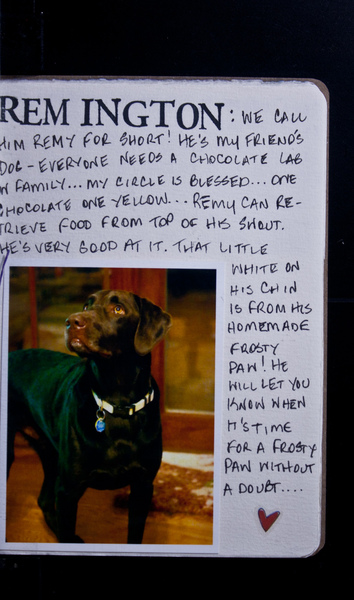 REMINGTON: WE CALL
HIM REMY FOR SHORT! HE'S MY FRIEND'S
DOG - EVERYONE NEEDS A CHOCOLATE LAB
IN FAMILY... MY CIRCLE IS BLESSED... ONE
CHOCOLATE ONE YELLOW... REMY CAN RE-
TRIEVE FOOD FROM TOP OF HIS SNOUT.
HE'S VERY GOOD AT IT. THAT LITTLE
WHITE ON
HIS CHIN
IS FROM HIS
HOMEMADE
FROSTY
PAW! HE
WILL LET YOU
KNOW WHEN
IT'S TIME
FOR A FROSTY
PAW WITHOUT
A DOUBT....